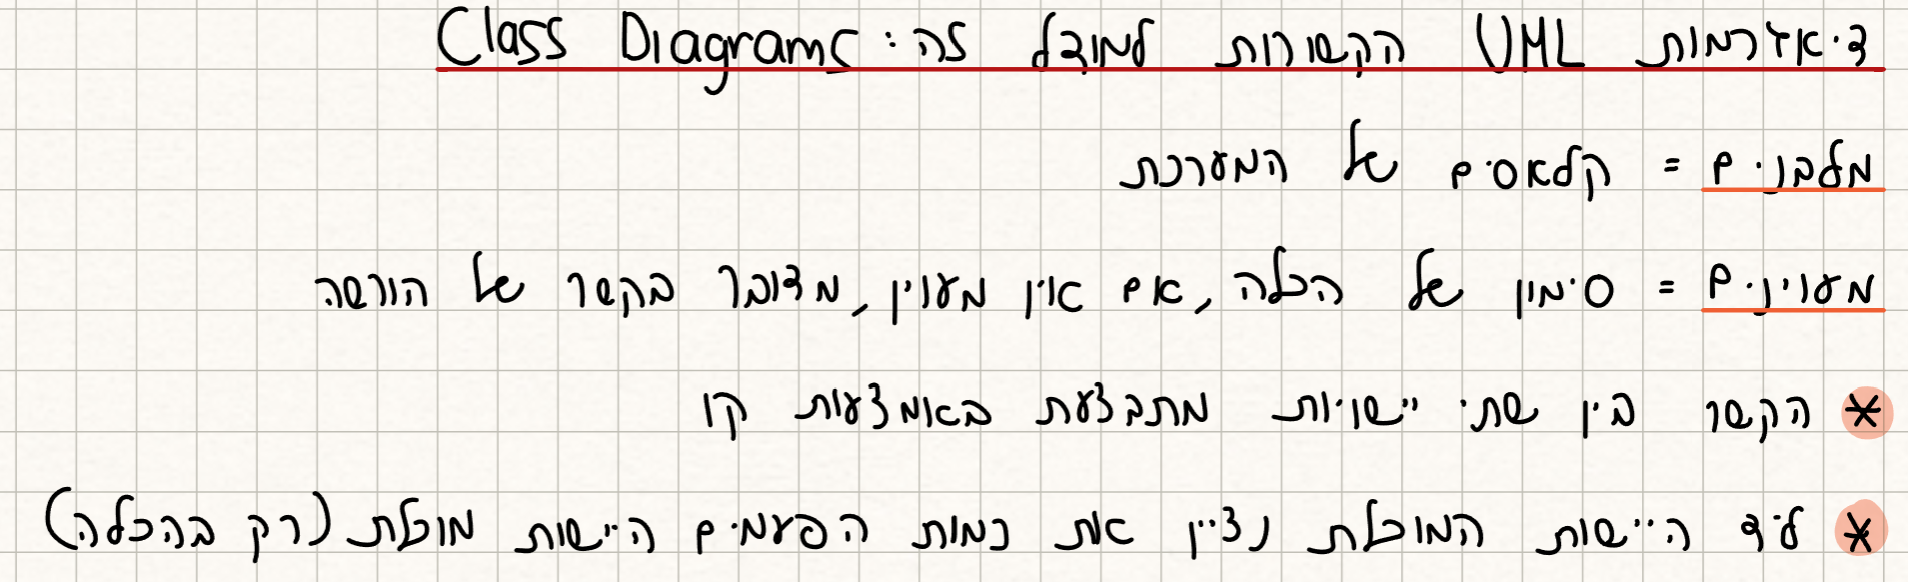 דיאגרמות UML הקשורות למודל זה: Class Diagrams
מלבנים = קלאסים של המערכת
מעוינים = סימון של הכלה, אם אין מעוין, מדובר בקשר של הורשה
* הקשר בין שתי יישויות מתבצעת באמצעות קו
* ליד היישות המוכלת נציין את כמות הפעמים היישות מוכלת (רק בהכלה)